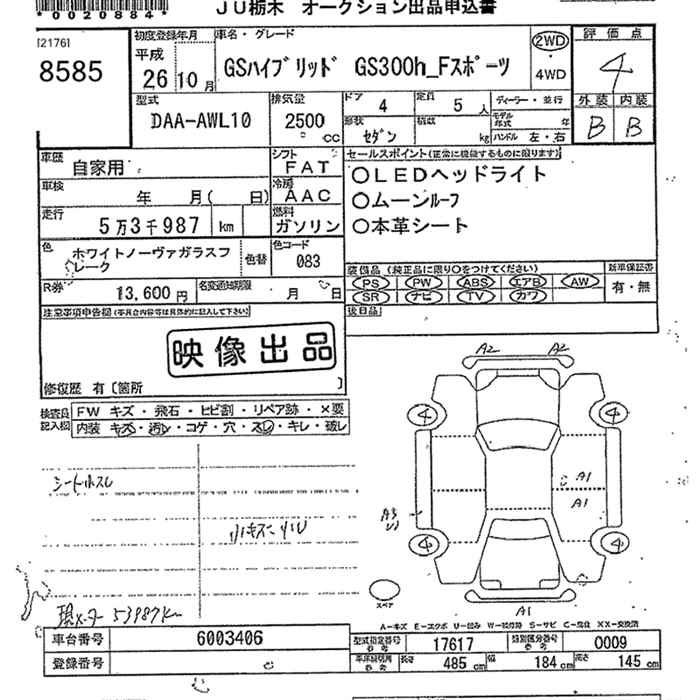 *0020884*
JU栃木 オークション出品申込書
[2176]
8585
初度登録年月
平成
26 10月
車名・グレード
GSハイブリッド GS300h_Fスポーツ
2WD
4WD
評価点
4
外装 内装
B B
型式
DAA-AWL10
排気量
2500
cc
ドア 4
定員 5 人
形状
セダン
積載
kg
ディーラー・並行
モデル年式 年
ハンドル 左・右
車歴
自家用
シフト
FAT
車検
年 月( 日)
冷房
AAC
走行
5万3千987 km
燃料
ガソリン
色
ホワイトノーヴァガラスフレーク
色替
色コード
083
R券
13,600円
名変通知期限
月 日
セールスポイント(正常に機能するものに限ります)
○LEDヘッドライト
○ムーンルーフ
○本革シート
装備品(純正品に限り○をつけてください)
PS PW ABS エアB AW
SR ナビ TV カワ
新車保証書
有・無
後日品
注意事項申告欄(不具合内容等は具体的に記入して下さい)
映像出品
修復歴 有〔箇所 〕
検査員記入欄
FW キズ・飛石・ヒビ割・リペア跡・×要
内装 キズ・汚レ・コゲ・穴・スレ・キレ・破レ
シートスレ
小キズ
現メーター 53987km
A2 A2
4 4
A1
A1
A3
4 4
A1
スペア
A-キズ E-エクボ U-凹み W-波打跡 S-サビ C-腐食 XX-交換済
車台番号 6003406
登録番号
型式指定番号 参考 17617
類別区分番号 参考 0009
車体説明用 参考 長さ 485cm 幅 184cm 高さ 145cm